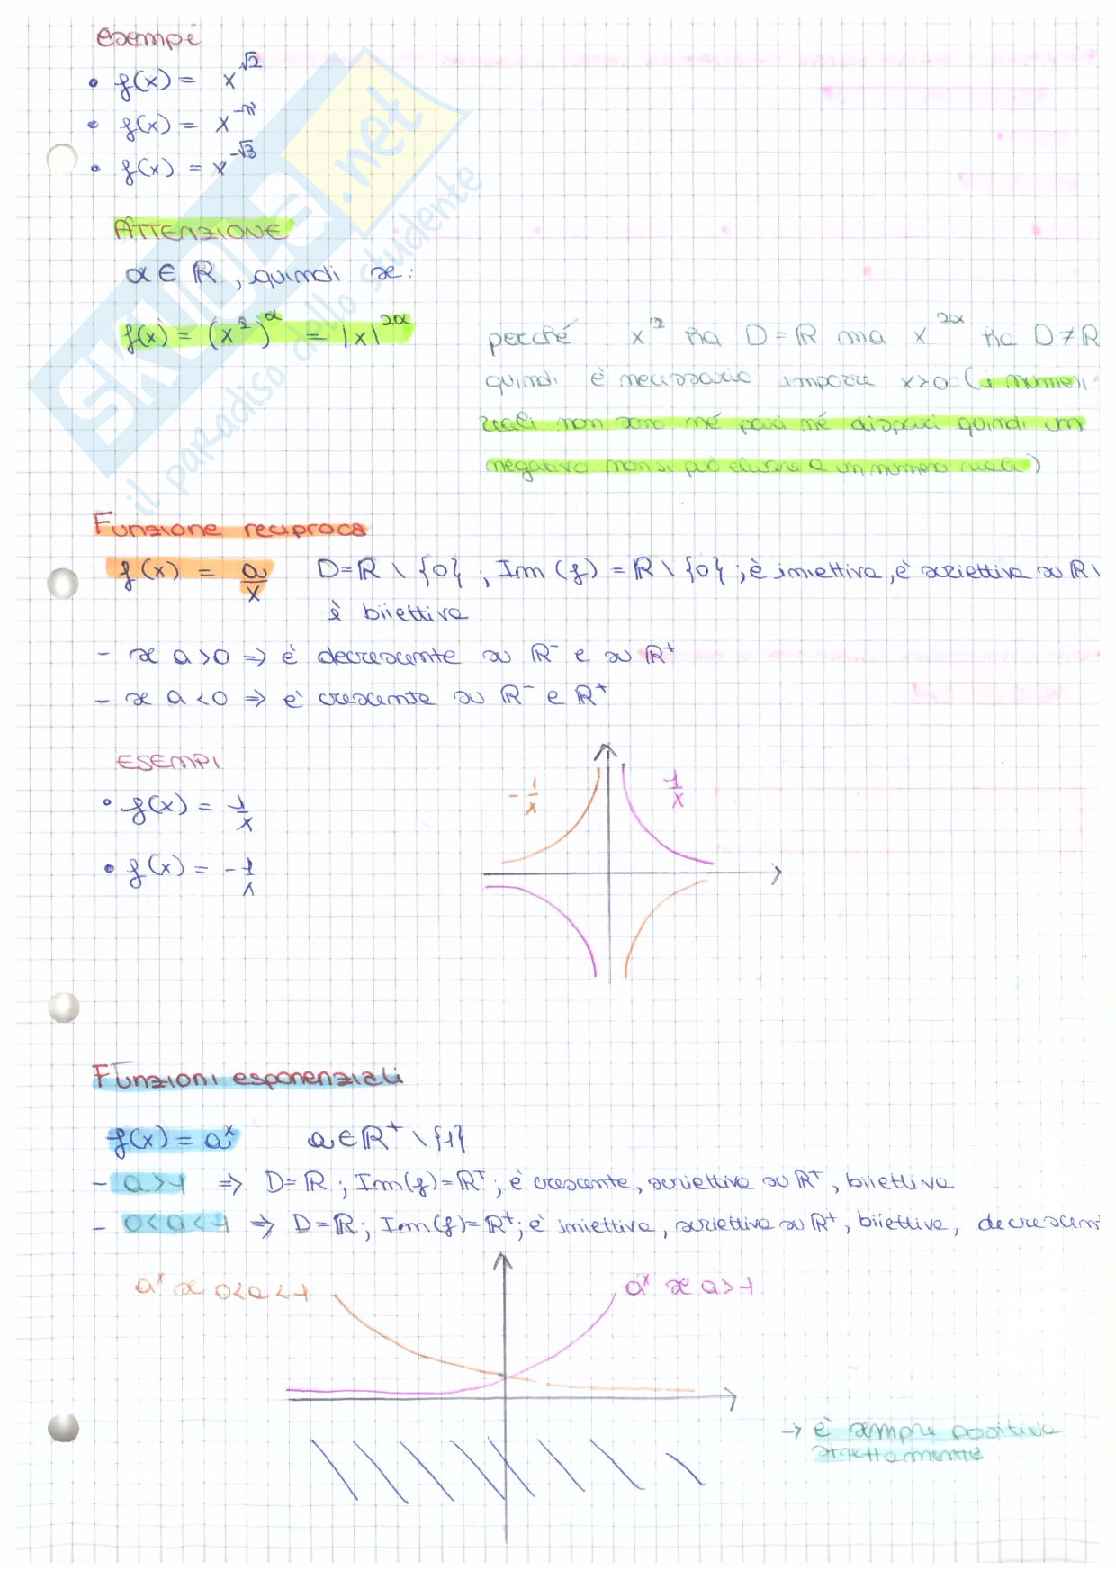 esempi
• f(x) = x^√2
• f(x) = x^-π
• f(x) = x^-√3
ATTENZIONE
α ∈ ℝ, quindi se:
f(x) = (x²)^α = |x|^2α
perché x² ha D = ℝ ma x^2α ha D ≠ ℝ
quindi è necessario imporre x>0 (i numeri
reali non sono né pari né dispari quindi un
negativo non si può elevare a un numero reale)
Funzione reciproca
f(x) = a/x D=ℝ \ {0}, Im(f) = ℝ \ {0}; è iniettiva, è suriettiva su ℝ \
è biiettiva
- se a>0 => è decrescente su ℝ⁻ e su ℝ⁺
- se a<0 => è crescente su ℝ⁻ e ℝ⁺
ESEMPI
• f(x) = 1/x
• f(x) = -1/x
-1/x
1/x
Funzioni esponenziali
f(x) = a^x a ∈ ℝ⁺ \ {1}
- a>1 => D=ℝ; Im(f)=ℝ⁺; è crescente, suriettiva su ℝ⁺, biiettiva
- 0<a<1 => D=ℝ; Im(f)=ℝ⁺; è iniettiva, suriettiva su ℝ⁺, biiettiva, decrescen
a^x se 0<a<1
a^x se a>1
→ è sempre positiva
strettamente
SKUOLA.net
il paradiso dello studente